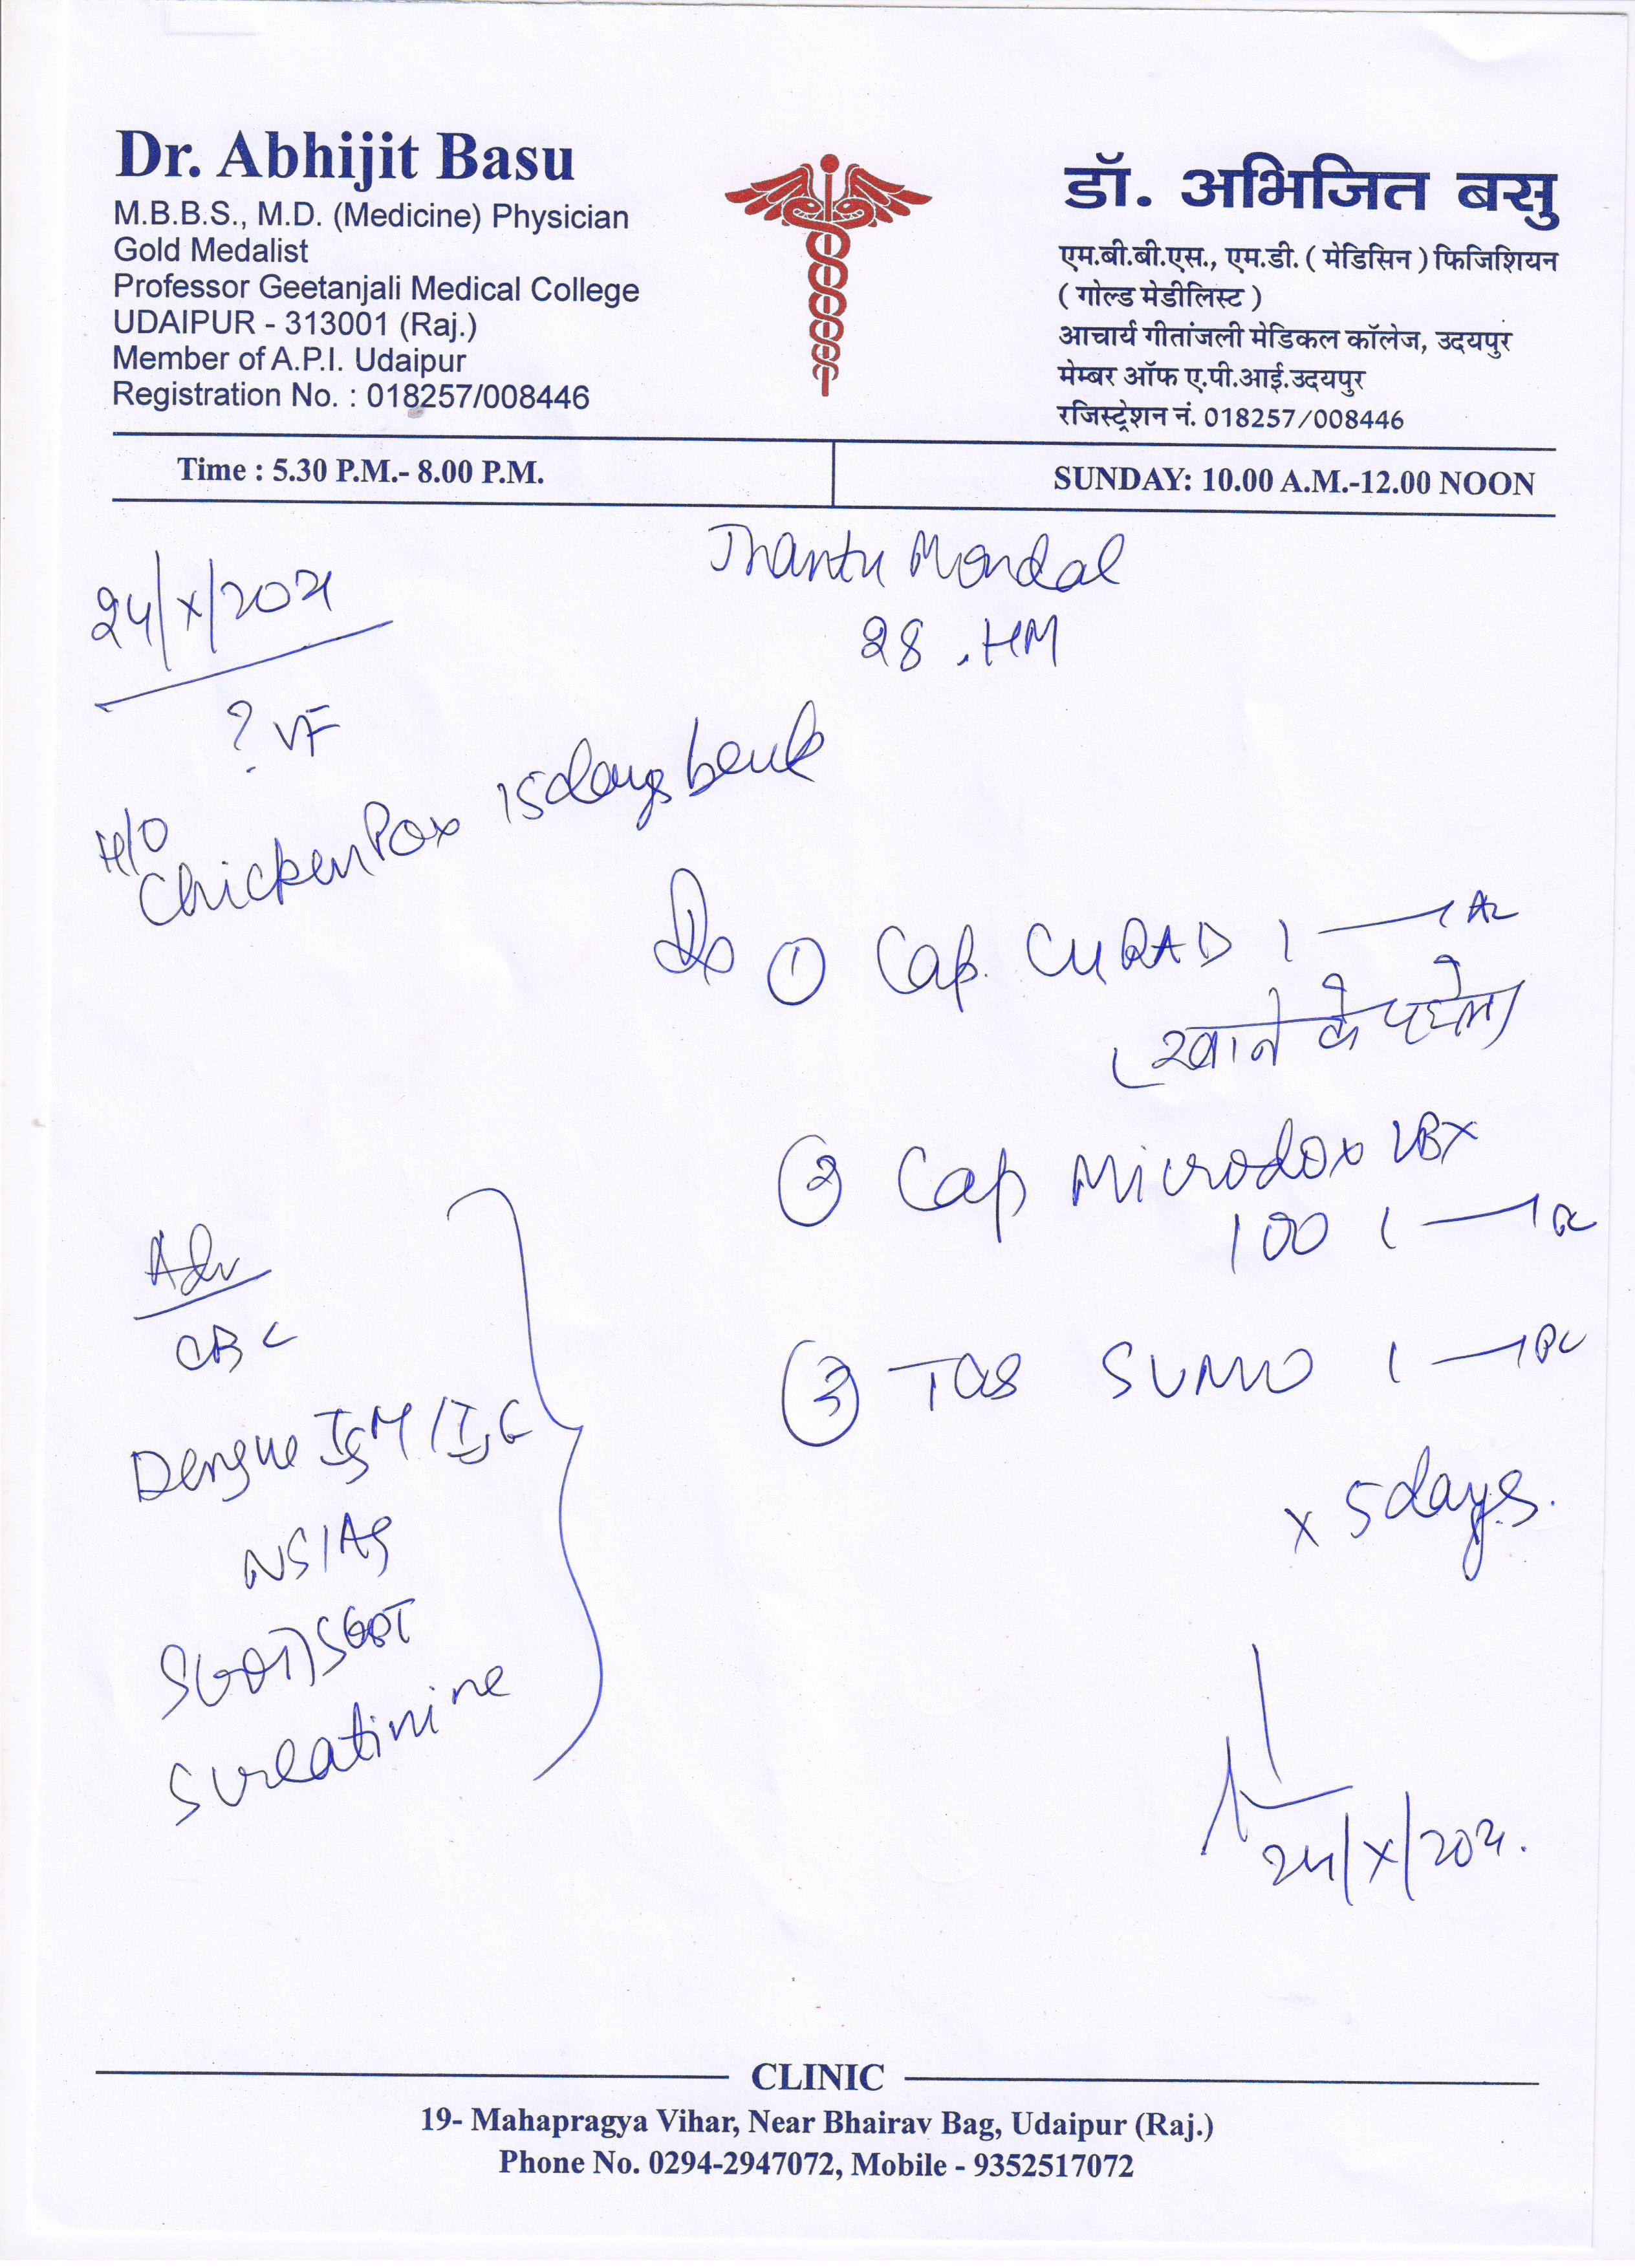 Dr. Abhijit Basu
M.B.B.S., M.D. (Medicine) Physician
Gold Medalist
Professor Geetanjali Medical College
UDAIPUR - 313001 (Raj.)
Member of A.P.I. Udaipur
Registration No. : 018257/008446
डॉ. अभिजित बसु
एम.बी.बी.एस., एम.डी. ( मेडिसिन ) फिजिशियन
( गोल्ड मेडीलिस्ट )
आचार्य गीतांजली मेडिकल कॉलेज, उदयपुर
मेम्बर ऑफ ए.पी.आई.उदयपुर
रजिस्ट्रेशन नं. 018257/008446
Time : 5.30 P.M.- 8.00 P.M.
SUNDAY: 10.00 A.M.-12.00 NOON
Jhantu Mondal
28 . HM
24/X/2021
? VF
H/O
Chicken Pox 15days
Rx ① Cap. CURAD 1
(खाने के पहले)
② Cap Microdox LBX
100 1
③ Tab SUMO 1
x 5days.
Adv
CBC
Dengue IgM/IgG
NS1Ag
SGOT/SGPT
S creatinine
24/X/2021.
CLINIC
19- Mahapragya Vihar, Near Bhairav Bag, Udaipur (Raj.)
Phone No. 0294-2947072, Mobile - 9352517072